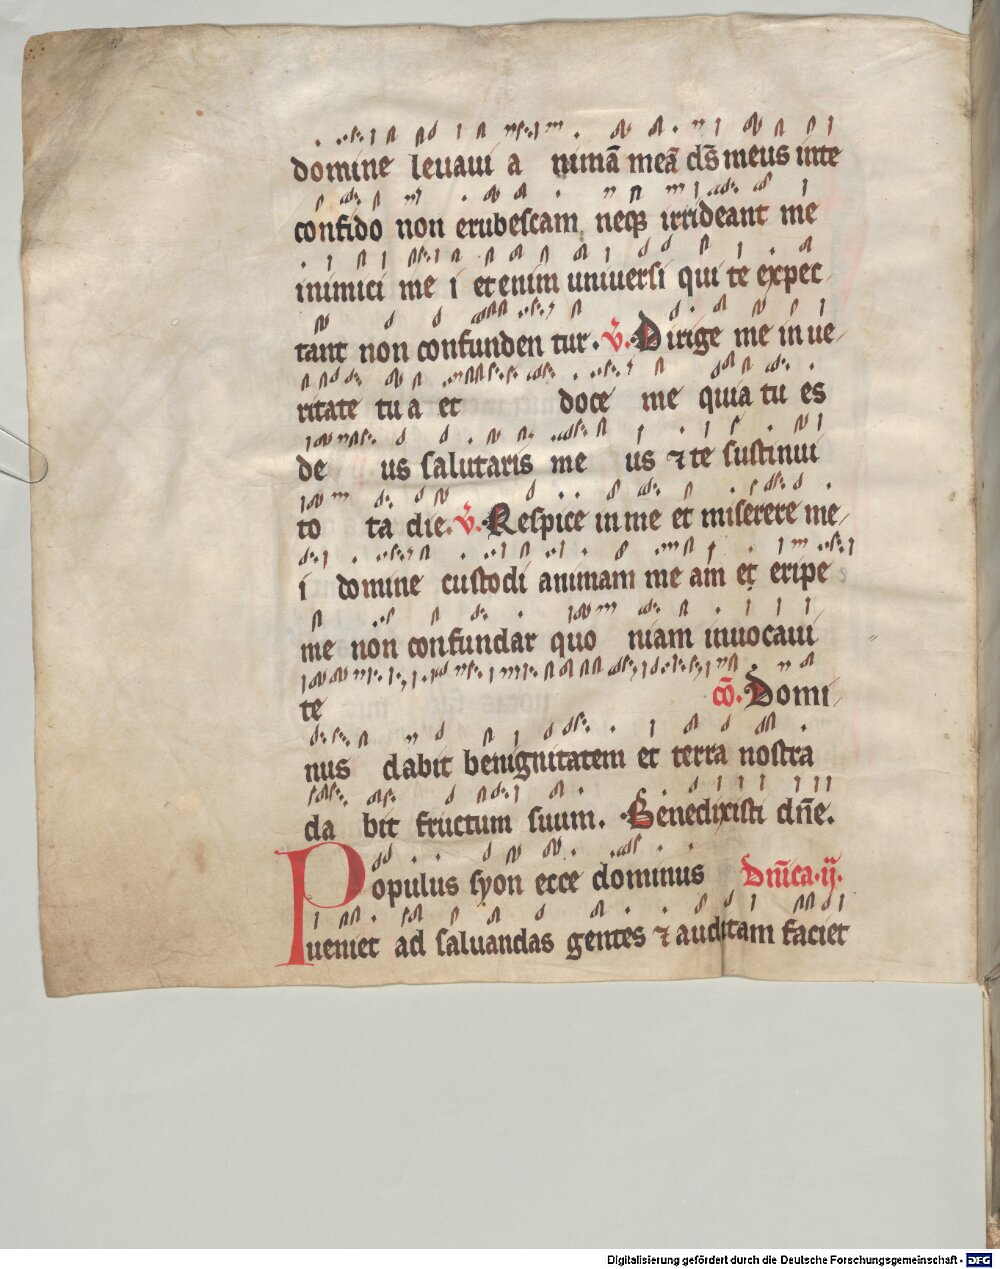 domine leuaui a nimā meā dn̄s meus inte
confido non erubescam neq irrideant me
inimici me i etenim uniuersi qui te expec
tant non confunden tur. v̄. Dirige me in ue
ritate tu a et doce me quia tu es
de us salutaris me us ⁊ te sustinui
to ta die. v̄. Respice in me et miserere me
i domine custodi animam me am et eripe
me non confundar quo niam inuocaui
te cō. Domi
nus dabit benignitatem et terra nostra
da bit fructum suum. Benedixisti dn̄e.
Populus syon ecce dominus Dn̄ica ·ij·
ueniet ad saluandas gentes ⁊ auditam faciet
Digitalisierung gefördert durch die Deutsche Forschungsgemeinschaft - DFG